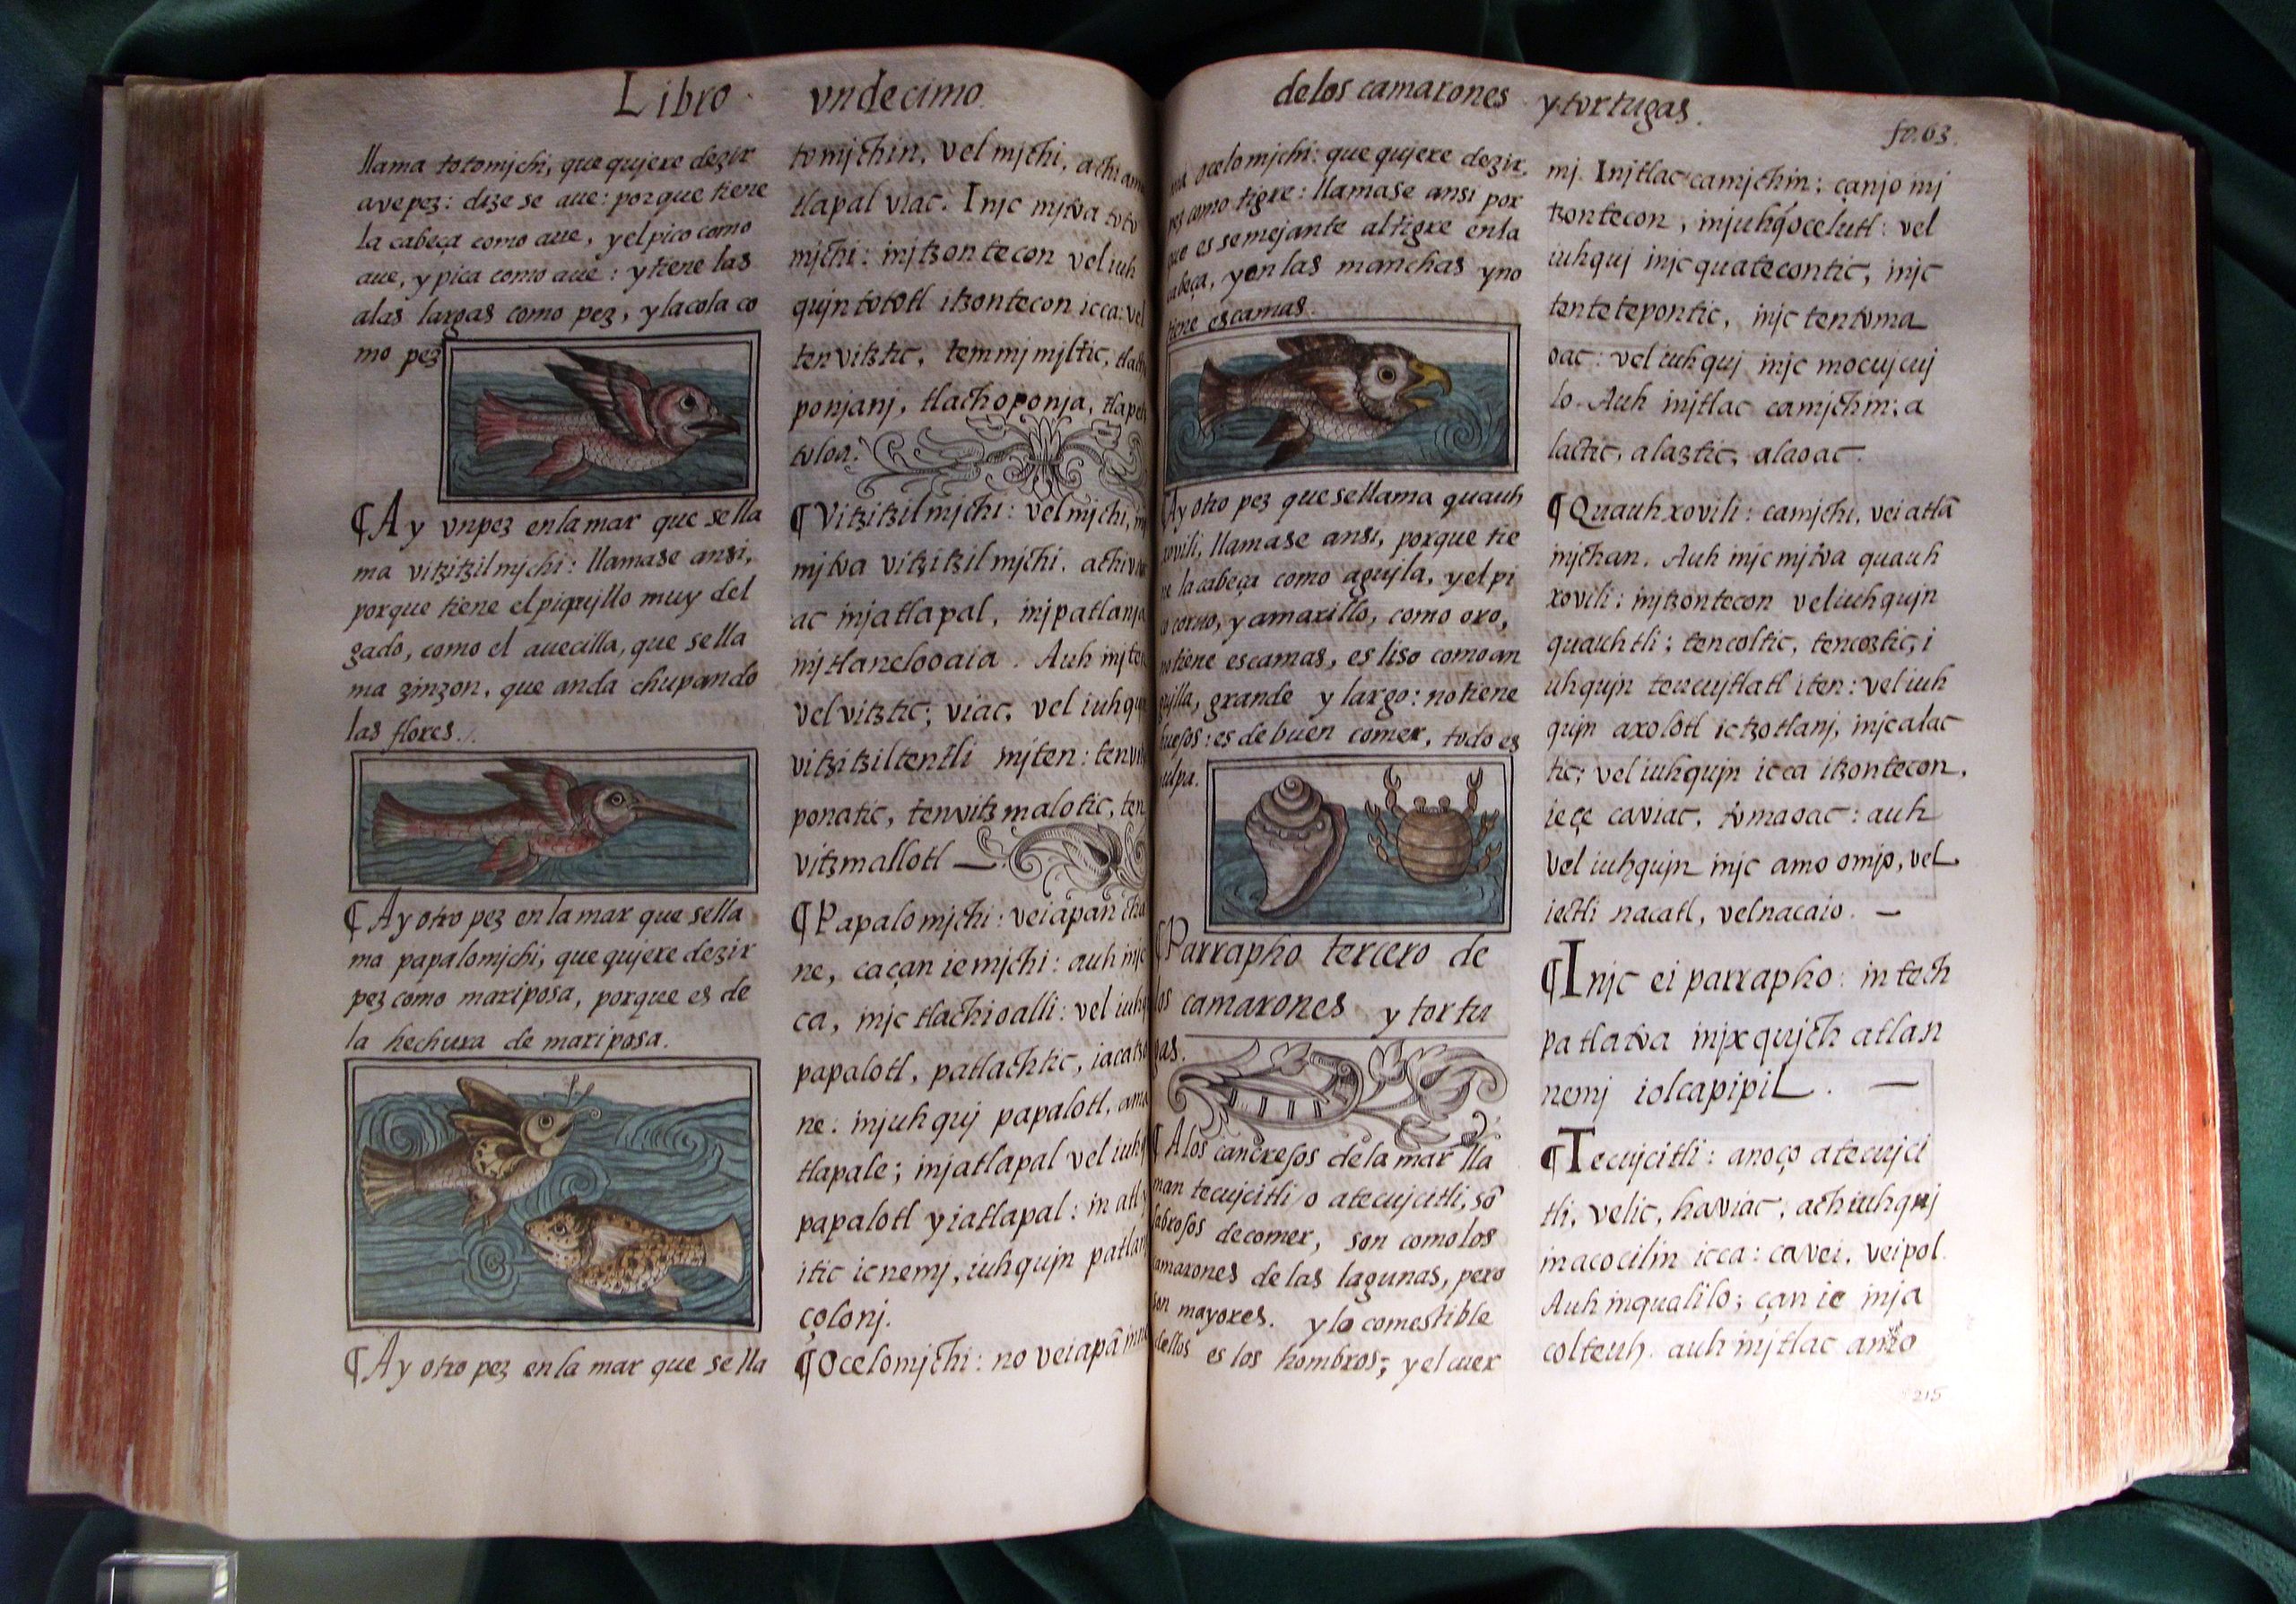 Libro vndecimo
llama totomjchi, que qujere dezir
avepez: dize se aue: porque tiene
la cabeça como aue, y el pico como
aue, y pica como aue: y tiene las
alas largas como pez, y la cola co
mo pez
¶Ay vn pez en la mar que se lla
ma vitzitzilmjchi: llamase ansi,
porque tiene el piqujllo muy del
gado, como el auecilla, que se lla
ma zinzon, que anda chupando
las flores.
¶Ay otro pez en la mar que se lla
ma papalomjchi, que qujere dezir
pez como mariposa, porque es de
la hechura de mariposa.
¶Ay otro pez en la mar que se lla
tomjchin, vel mjchi, achi
tlapal viac. Injc mjtva toto
mjchi: injtzontecon vel iuh
qujn tototl itzontecon icca: vel
tenvitztic, temmjmjltic,
ponjanj, tlachoponja,
toloa.
¶Vitzitzilmjchi: vel mjchi,
mjtva vitzitzilmjchi, achi
ac injatlapal, injpatlanja
injtlanelooaia. Auh injten
vel vitztic; viac, vel iuhqujn
vitzitziltentli injten:
ponatic, tenvitzmalotic, ten
vitzmallotl
¶Papalomjchi: veiapan
ne, caçan ie mjchi: auh injc
ca, injc tlachioalli: vel iuhquj
papalotl, patlachtic,
ne: injuhquj papalotl,
tlapale; injatlapal vel iuhquj
papalotl yiatlapal: in atl y
itic ic nemj, iuhqujn patlan
çolonj.
¶Ocelomjchi: no veiapā
de los camarones y tortugas. fo. 63.
ma ocelomjchi: que qujere dezir,
pez como tigre: llamase ansi por
que es semejante al tigre en la
cabeça, y en las manchas y no
tiene escamas.
¶Ay otro pez que se llama quauh
xovili, llamase ansi, porque tie
ne la cabeça como agujla, y el pi
co corvo, y amarillo, como oro,
no tiene escamas, es liso como an
gujlla, grande y largo: no tiene
huesos: es de buen comer, todo es
pulpa.
¶Parrapho tercero de
los camarones y tortu
gas.
¶A los cancrejos de la mar lla
man tecujcitli / o atecujcitli, sō
sabrosos de comer, son como los
camarones de las lagunas, pero
son mayores. y lo comestible
dellos es los hombros; y el cuer
mj. Injtlac camjchin: çanjo inj
tzontecon, injuhq̄ ocelutl: vel
iuhquj injc quatecontic, injc
tentetepontic, injc tentoma
oac: vel iuhquj injc mocujcuj
lo. Auh injtlac camjchin: a
lactic, alaztic, alaoac.
¶Quauhxovili: camjchi, vei atlā
injchan. Auh injc mjtva quauh
xovili: injtzontecon vel iuhqujn
quauhtli; tencoltic, tencoztic, i
uhqujn teucujtlatl iten: vel iuh
qujn axolotl ic tzotlanj, injc alac
tic; vel iuhqujn icca itzontecon,
ieçe caviac, tomaoac: auh
vel iuhqujn injc amo omjo, vel
iectli nacatl, vel nacaio.
¶Injc ei parrapho: intech
patlatoa injxqujch atlan
nemj iolcapipil.
¶Tecujcitli: anoço atecujci
tli, velic, haviac, ach iuhquj
in acocilin icca: ca vei, veipol.
Auh in qualilo; çan ie inja
colteuh. auh injtlac
215